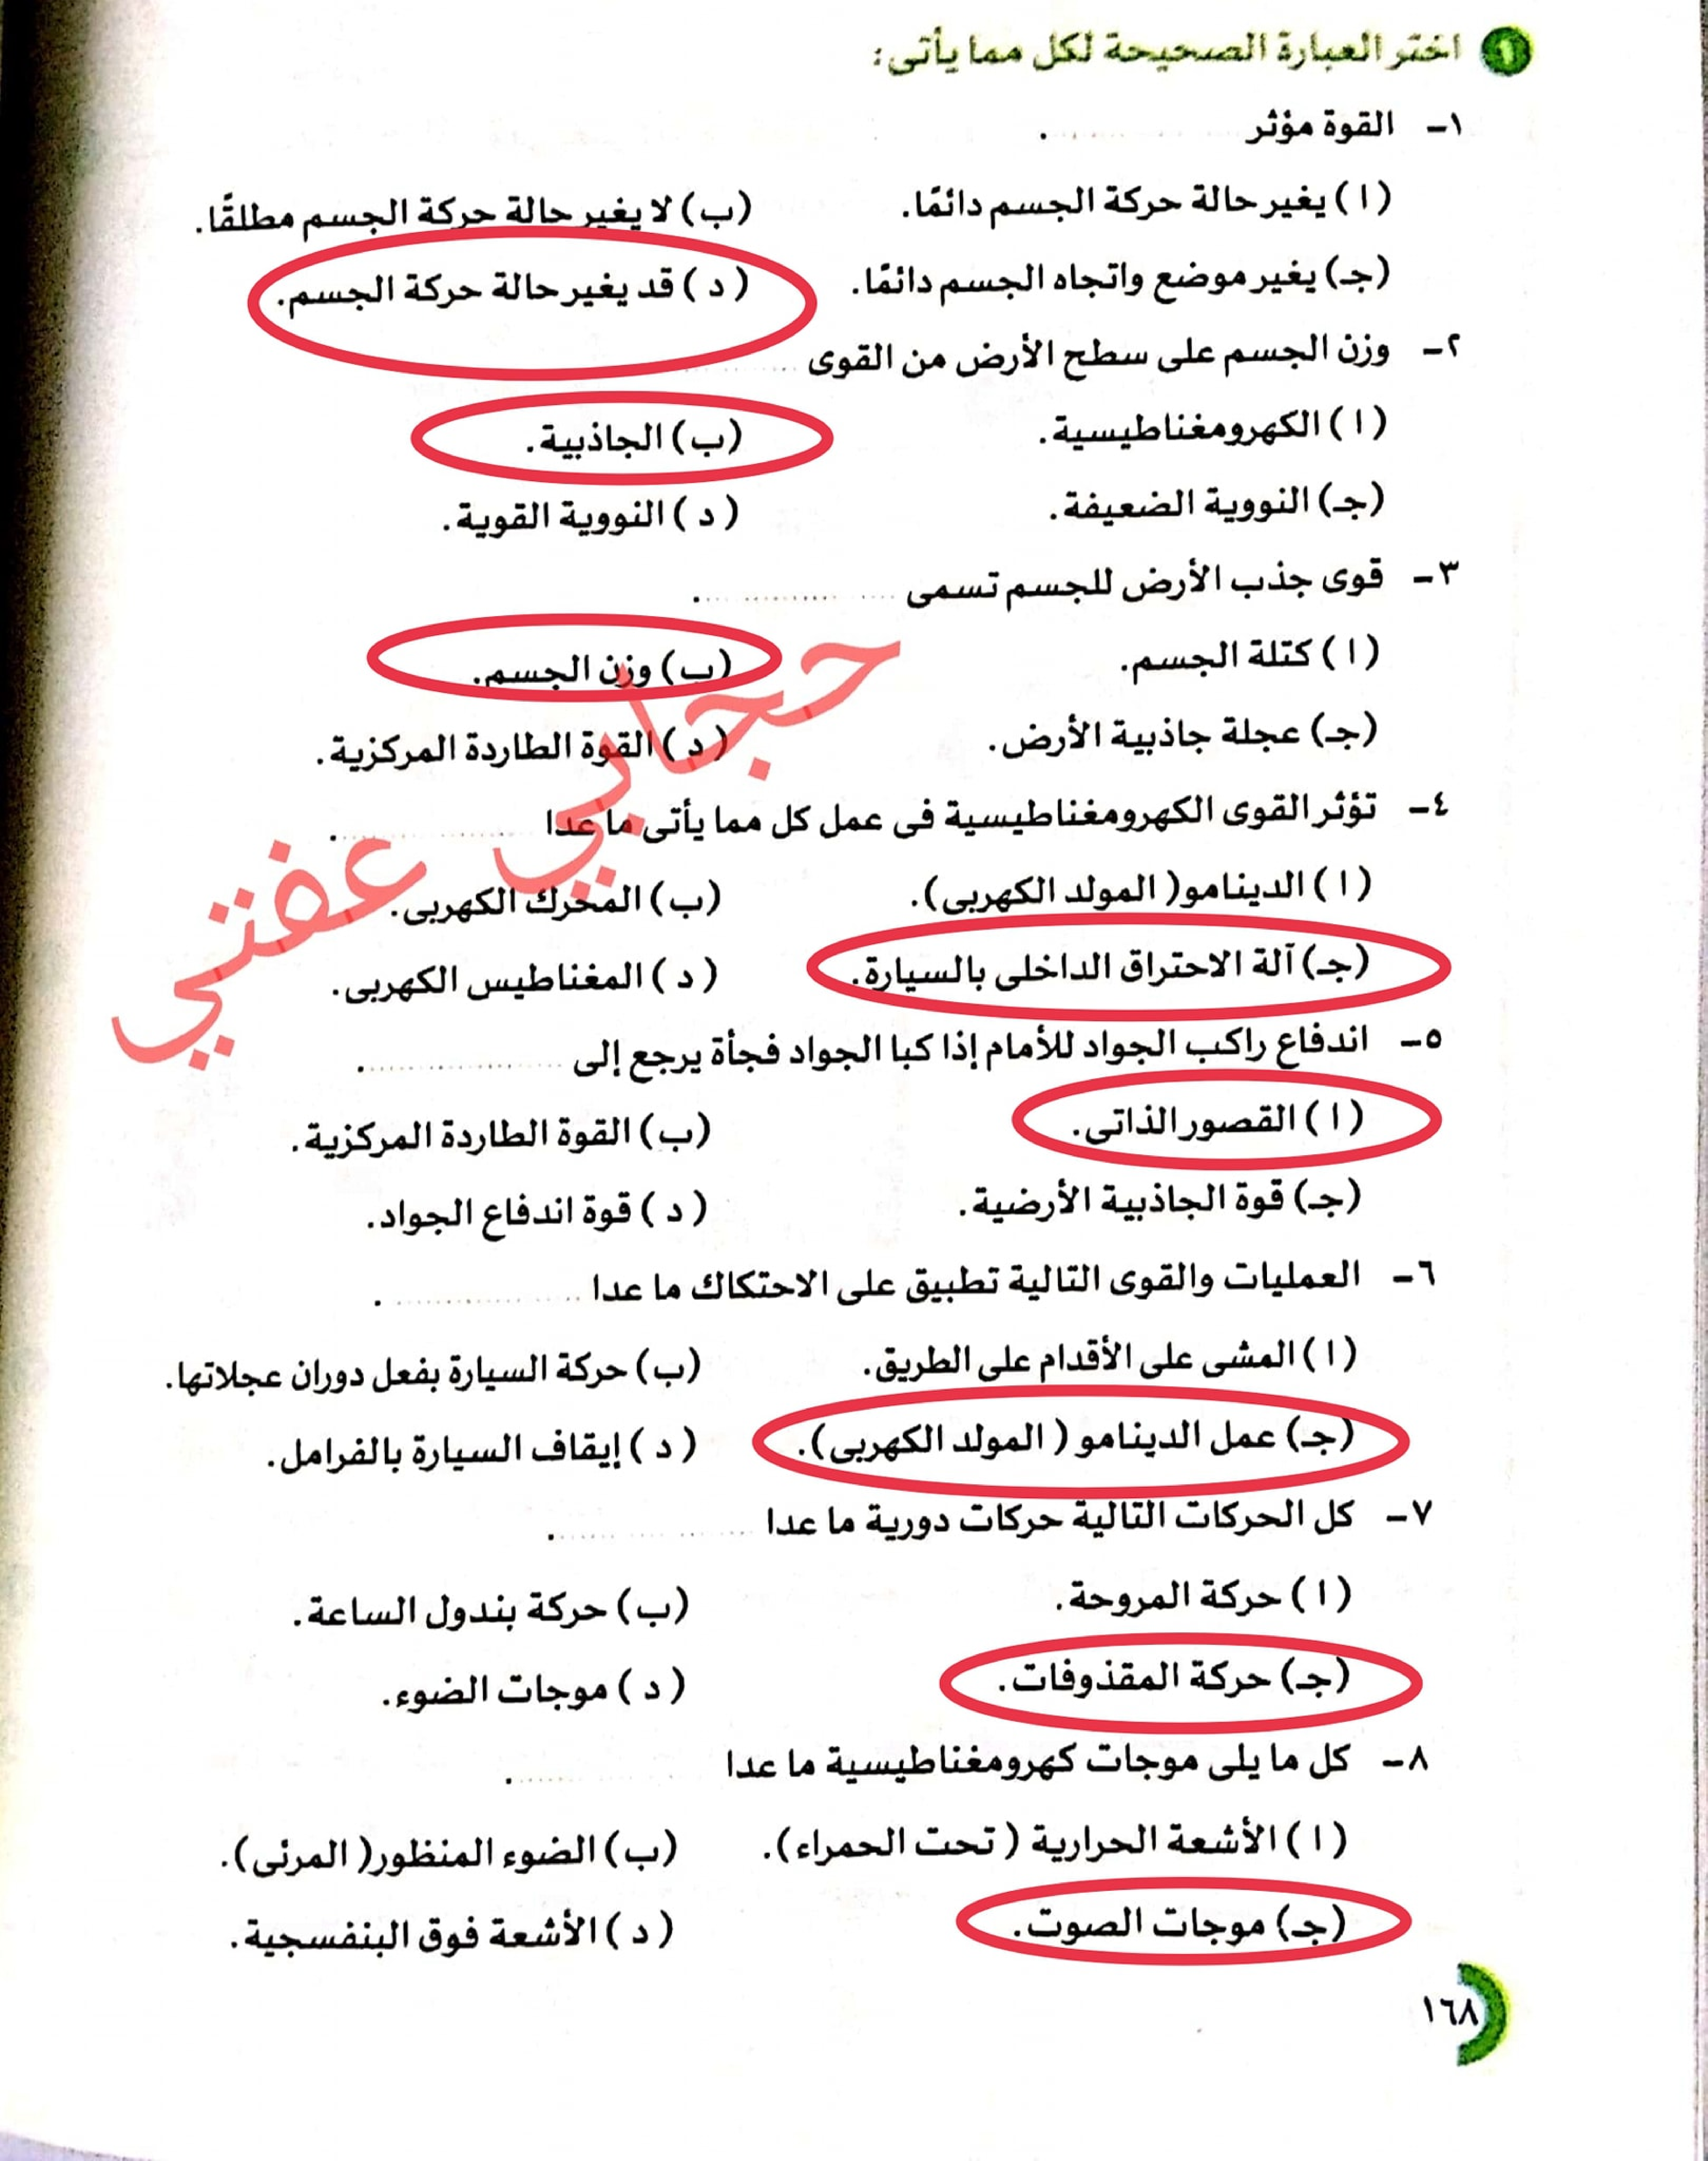 ١ اختر العبارة الصحيحة لكل مما يأتى:
١- القوة مؤثر .............
(ا) يغير حالة حركة الجسم دائمًا. (ب) لا يغير حالة حركة الجسم مطلقًا.
(جـ) يغير موضع واتجاه الجسم دائمًا. (د) قد يغير حالة حركة الجسم.
٢- وزن الجسم على سطح الأرض من القوى .............
(ا) الكهرومغناطيسية. (ب) الجاذبية.
(جـ) النووية الضعيفة. (د) النووية القوية.
٣- قوى جذب الأرض للجسم تسمى .............
(ا) كتلة الجسم. (ب) وزن الجسم.
(جـ) عجلة جاذبية الأرض. (د) القوة الطاردة المركزية.
٤- تؤثر القوى الكهرومغناطيسية فى عمل كل مما يأتى ما عدا .............
(ا) الدينامو (المولد الكهربى). (ب) المحرك الكهربى.
(جـ) آلة الاحتراق الداخلى بالسيارة. (د) المغناطيس الكهربى.
٥- اندفاع راكب الجواد للأمام إذا كبا الجواد فجأة يرجع إلى .............
(ا) القصور الذاتى. (ب) القوة الطاردة المركزية.
(جـ) قوة الجاذبية الأرضية. (د) قوة اندفاع الجواد.
٦- العمليات والقوى التالية تطبيق على الاحتكاك ما عدا .............
(ا) المشى على الأقدام على الطريق. (ب) حركة السيارة بفعل دوران عجلاتها.
(جـ) عمل الدينامو (المولد الكهربى). (د) إيقاف السيارة بالفرامل.
٧- كل الحركات التالية حركات دورية ما عدا .............
(ا) حركة المروحة. (ب) حركة بندول الساعة.
(جـ) حركة المقذوفات. (د) موجات الضوء.
٨- كل ما يلى موجات كهرومغناطيسية ما عدا .............
(ا) الأشعة الحرارية (تحت الحمراء). (ب) الضوء المنظور (المرئى).
(جـ) موجات الصوت. (د) الأشعة فوق البنفسجية.
١٦٨
حجابي عفتي